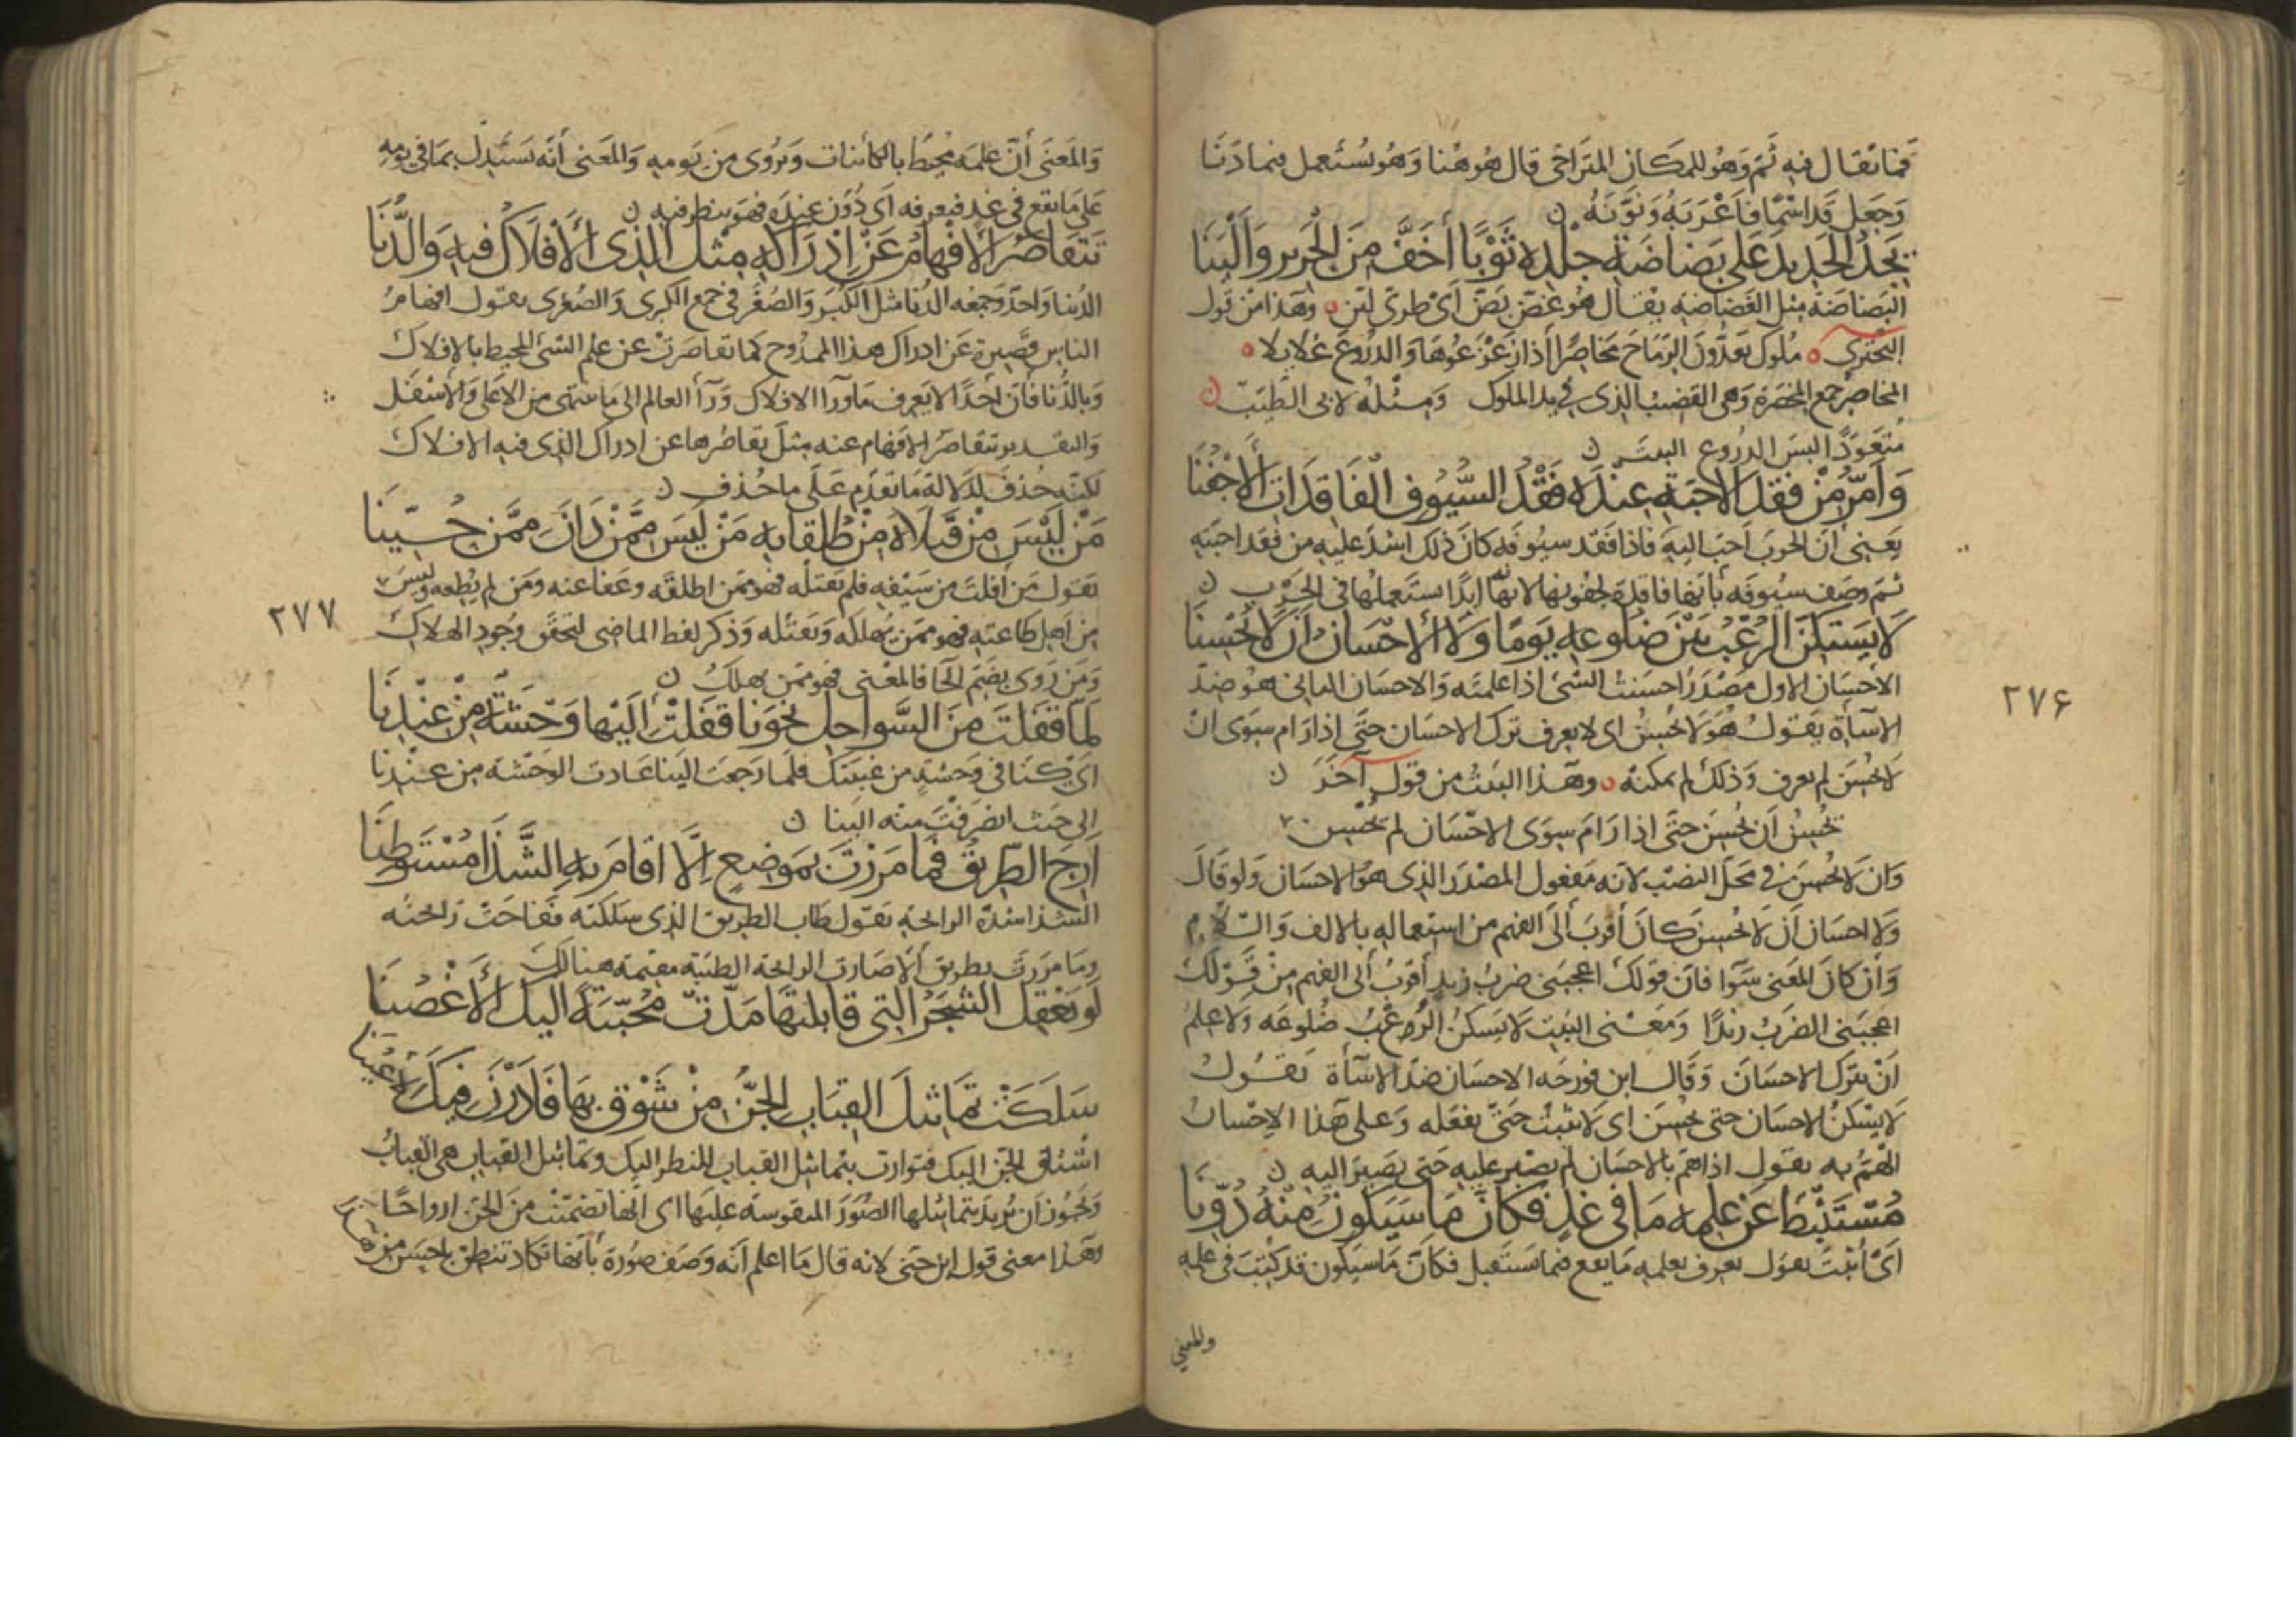 فمانقال فيه ثم وهو للمكان المتراخى قال هو هنا وهو يستعمل فيما دنا
وجعل قد اسمًا فاعربه ونونه ن
يجد الحديد على بضاضة جلده ثوبًا أخف من الحرير وألينا
البضاضة مثل الغضاضة يقال هو غض بض اى طرى لين وهذا من قول
البحترى ملوك يعدون الرماح مخاصرا اذا زعزعوها والدروع غلايلا
المخاصر جمع المخصرة وهى القضيب الذى فى يد الملوك ومثله لابى الطيب ن
متعودًا لبس الدروع البيت ن
وأمر من فقد الاحبة عنده فقد السيوف الفاقدات الأجفنا
يعنى ان الحرب احب اليه فاذا فقد سيوفه كان ذلك اشد عليه من فقد احبته
ثم وصف سيوفه بأنها فاقدة لجفونها لانه ابدًا يستعملها فى الحرب ن
لا يستكن الرعب بين ضلوعه يومًا ولا الإحسان أن لا يحسنا
الاحسان الاول مصدر احسنت الشئ اذا علمته والاحسان الثانى هو ضد
الاسآة يقول هو لا يحسن اى لا يعرف ترك الاحسان حتى اذا رام سوى ان
لا يحسن لم يعرف وذلك لم يمكنه وهذا البيت من قول آخر ن
يحسن أن يحسن حتى اذا رام سوى الاحسان لم يحسن
وان لا يحسن فى محل النصب لانه مفعول المصدر الذى هو الاحسان ولو قال
ولا احسان أن لا يحسن كان أقرب ألى الفهم من استعماله بالالف واللام
وأن كان المعنى سوآ فان قولك اعجبنى ضرب زيد أقرب ألى الفهم من قولك
اعجبنى الضرب زيدًا ومعنى البيت لا يسكن الرعب ضلوعه ولا علم
أن يترك الاحسان وقال ابن فورجه الاحسان ضد الاسآة يقول
لا يسكن الاحسان حتى يحسن اى لا يثبت حتى يفعله وعلى هذا الإحسان
الهم به يقول اذا هم بالاحسان لم يصبر عليه حتى يصير اليه ن
مستنبط عن علمه ما فى غد فكأن ما سيكون منه دونا
اى أثبت يقول يعرف بعلمه ما يقع فيما يستقبل فكأن ما سيكون قد كتبت فى علمه
والمعنى
٢٧۶
والمعنى أن علمه محيط بالكائنات ويروى من يومه والمعنى أنه يستدل بما فى يومه
على ما يقع فى غد فيعرفه اى دون عنده فهو ينظر فيه ن
تتقاصر الأفهام عن إدراكه مثل الذى الأفلاك فيه والدنا
الدنيا واحد وجمعه الدنا مثل الكبر والصغر فى جمع الكبرى والصغرى يقول افهام
الناس قصيرة عن ادراك هذا الممدوح كما تقاصرت عن علم الشئ المحيط بالافلاك
وبالدنا فأن أحدًا لا يعرف ما ورآ الافلاك ورآء العالم الى ما ينتهى من الاعلى والأسفل
والتقدير تتقاصر الافهام عنه مثل تقاصرها عن ادراك الذى فيه الافلاك
لكنه حذف لدلالة ما تقدم على ما حذف ن
من ليس من قتلاه من طلقائه من ليس ممن دان ممن حينا
يقول من أفلت من سيفه فلم يقتله فهو ممن اطلقه وعفا عنه ومن لم يطعه وليس
من اهل طاعته فهو ممن يهلكه ويقتله وذكر لفظ الماضى لتحقق وجود الهلاك
ومن روى بضم الحا فالمعنى فهو ممن يهلك ن
لما قفلت من السواحل نحونا قفلت اليها وحشة من عندنا
اى كنا فى وحشة من غيبتك فلما رجعت الينا عادت الوحشة من عندنا
الى حيث انصرفت منه الينا ن
أرج الطريق فما مررت بموضع إلا اقام به الشذا مستوطنا
الشذا شدة الرائحة يقول طاب الطريق الذى سلكته ففاحت رائحته
وما مررت بطريق ألا صارت الرائحة الطيبة مقيمة هنالك
لو تعقل الشجر التى قابلتها مدت محيية اليك الأغصنا
سلكت تماثيل القباب الجن من شوق بها فأدرن فيك الأعينا
اشتاق الجن اليك فتوارت بتماثيل القباب للنظر اليك وتماثيل القباب هى القباب
ويجوز ان يريد بتماثيلها الصور المنقوشة عليها اى انها تضمنت من الجن ارواحًا
هذا معنى قول ابن جنى لانه قال ما اعلم انه وصف صورة بأنها تكاد تنطق باحسن من هذا
٢٧٧